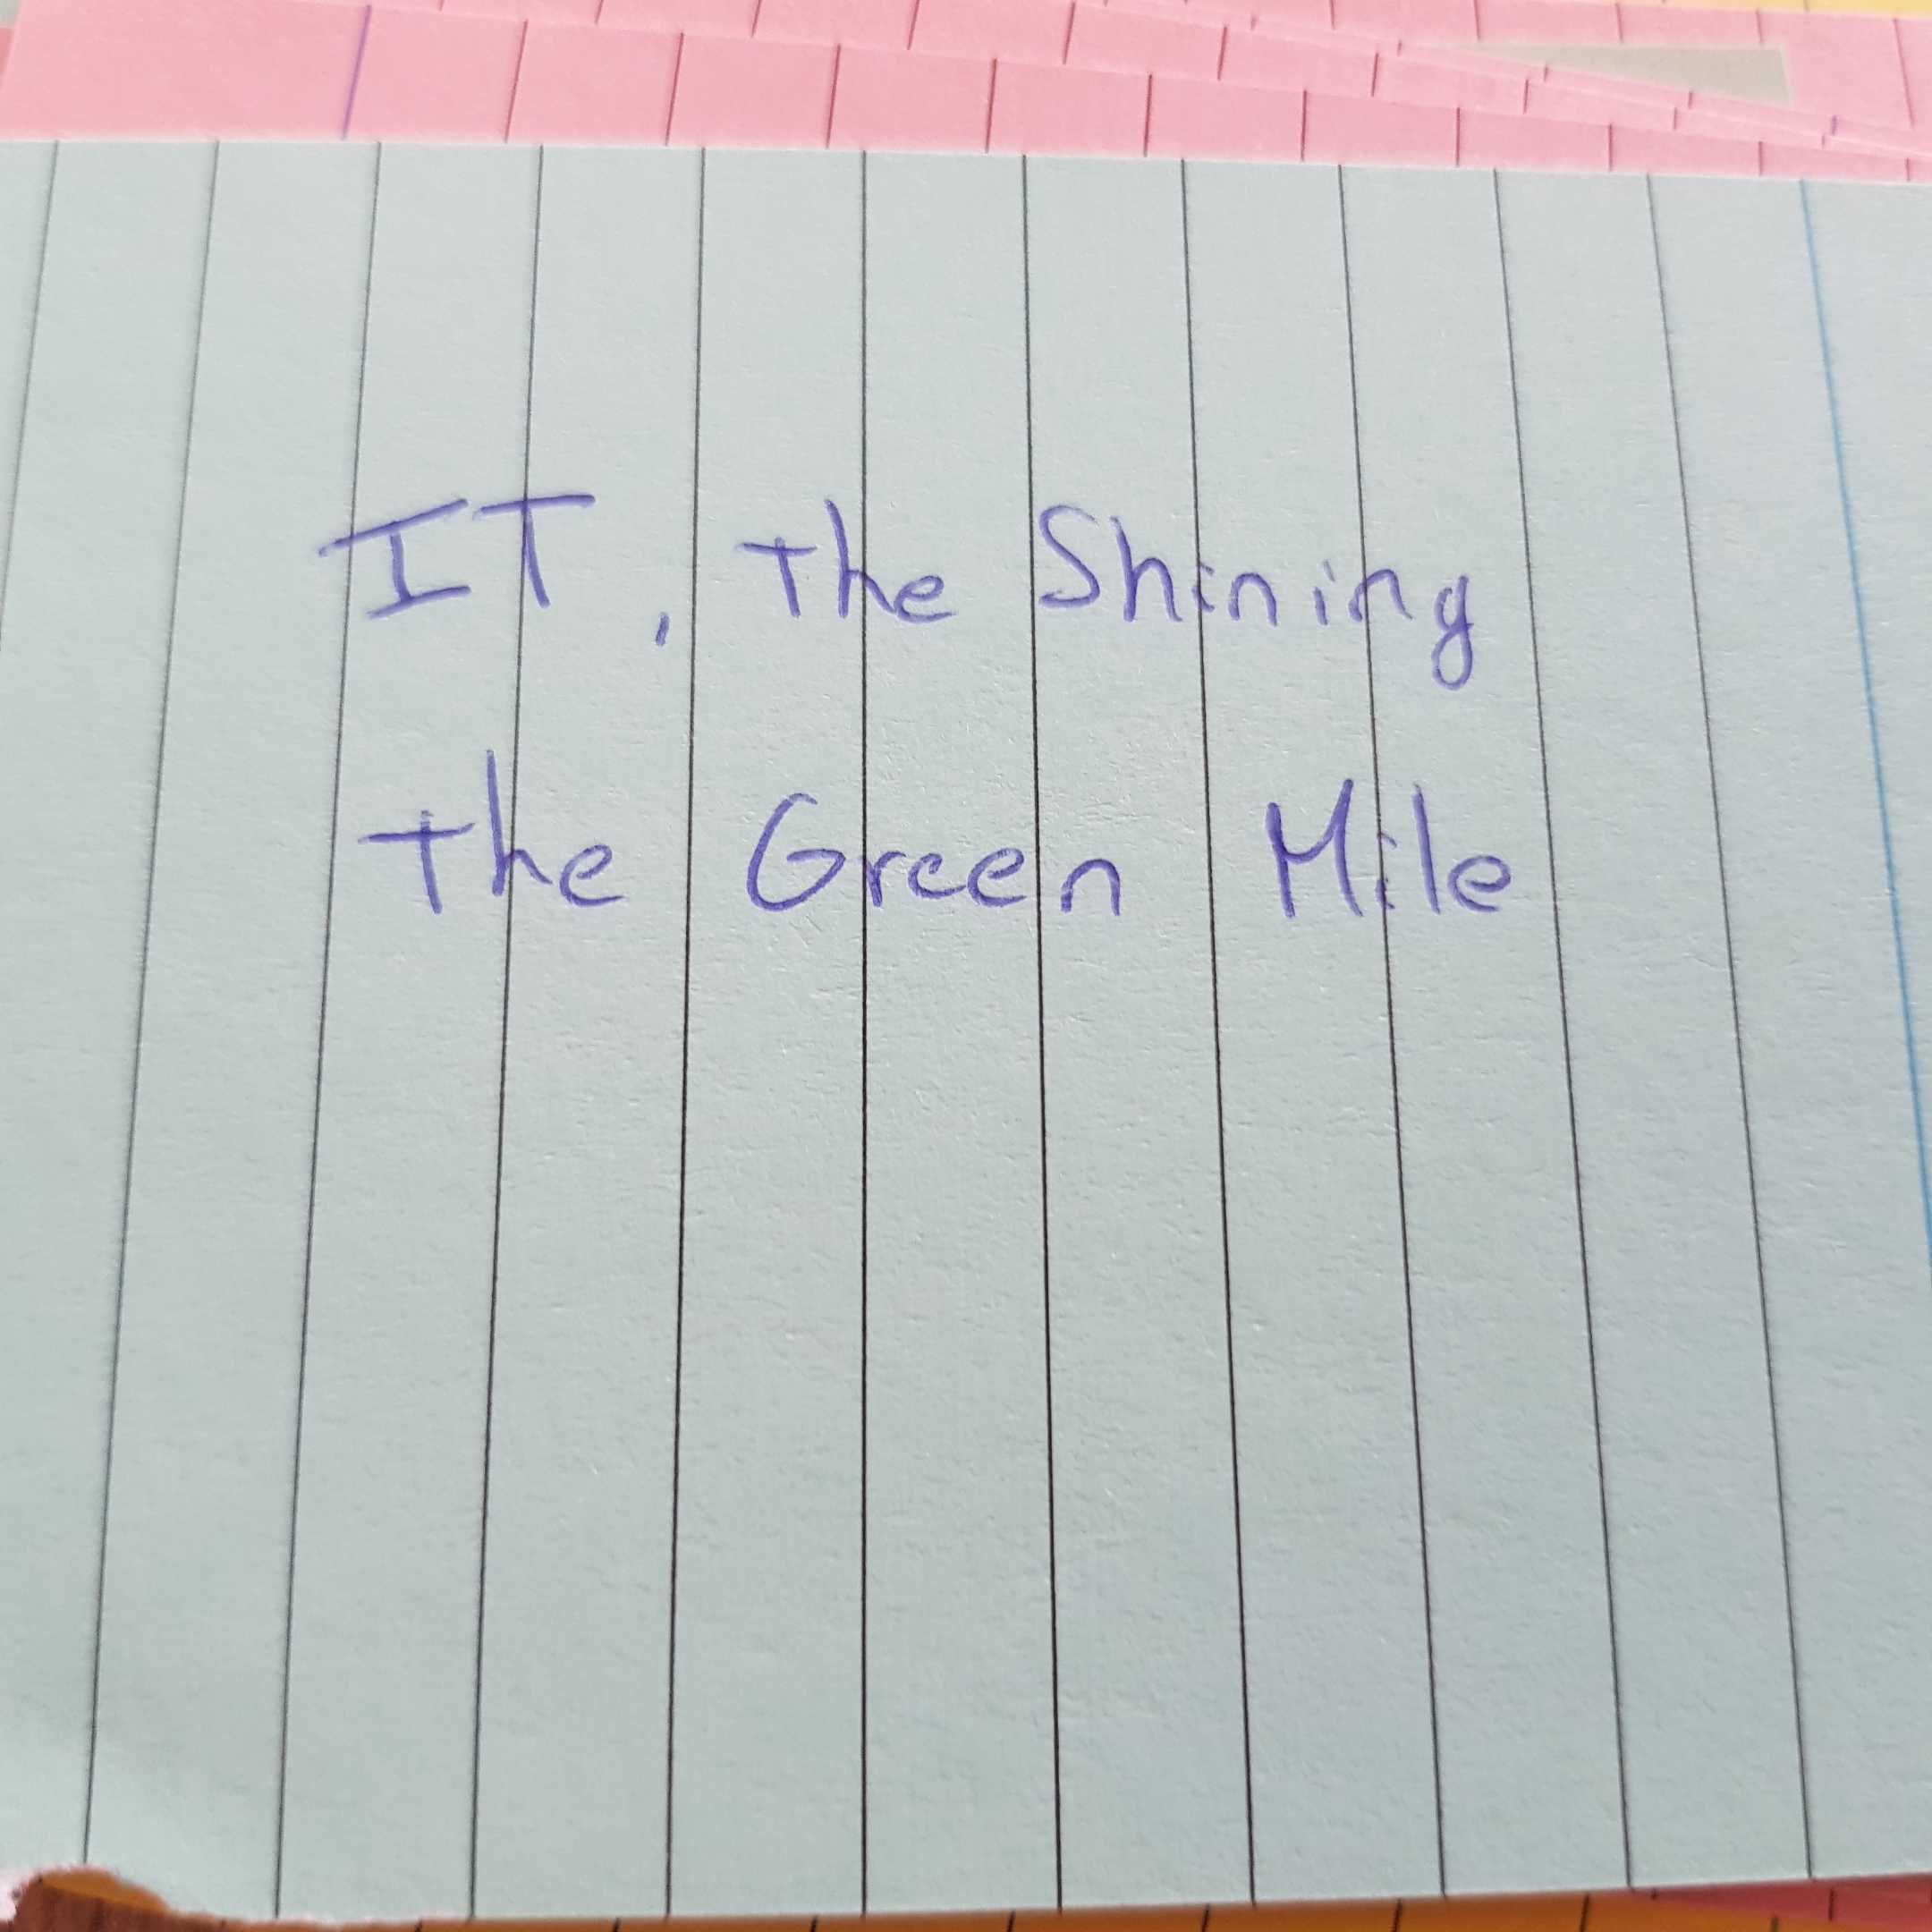 IT, the Shining
the Green Mile